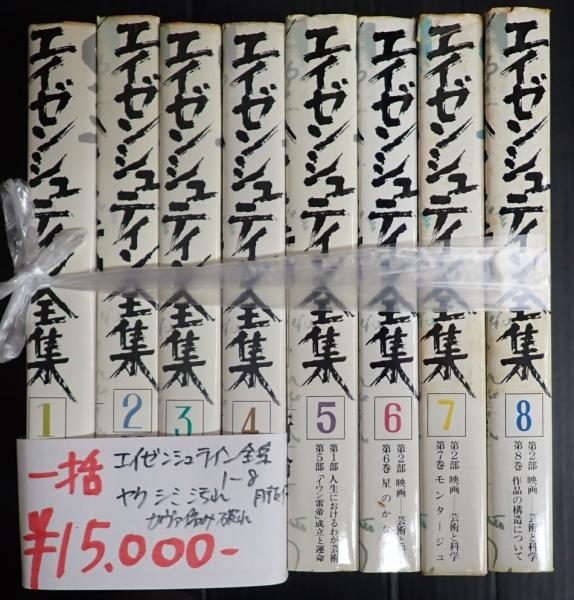 エイゼンシュテイン全集
1
エイゼンシュテイン全集
2
エイゼンシュテイン全集
3
エイゼンシュテイン全集
4
エイゼンシュテイン全集
5
第1部 人生におけるわが芸術
第5部 「イワン雷帝」成立と運命
エイゼンシュテイン全集
6
第2部 映画 芸術と科学
第6巻 星のかな
エイゼンシュテイン全集
7
第2部 映画 芸術と科学
第7巻 モンタージュ
エイゼンシュテイン全集
8
第2部 映画 芸術と科学
第8巻 作品の構造について
一括 エイゼンシュライン全集
1-8
ヤケ シミ 汚れ 月報
カヴァ傷み 破れ
¥15,000-